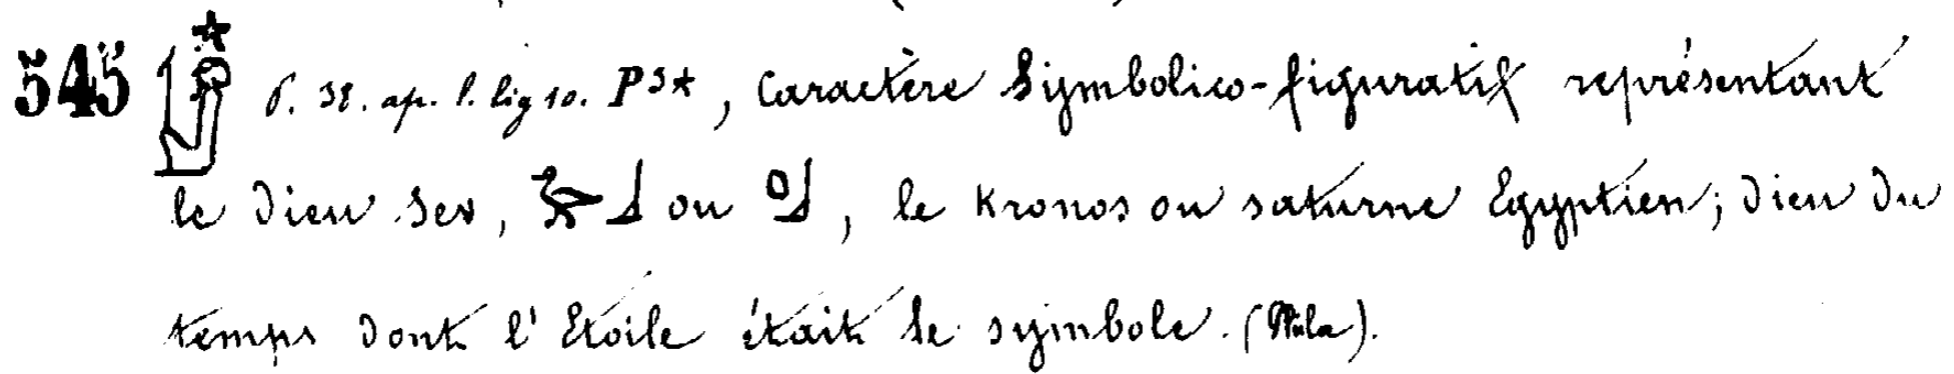 545 𓁐 p. 38. ap. l. lig 10. P 3*, Caractère Symbolico-figuratif représentant
le Dieu Sev, 𓅬𓃀 ou 𓃀, le Kronos ou saturne Egyptien; Dieu Du
temps Dont l'Etoile était le symbole. (Philæ).